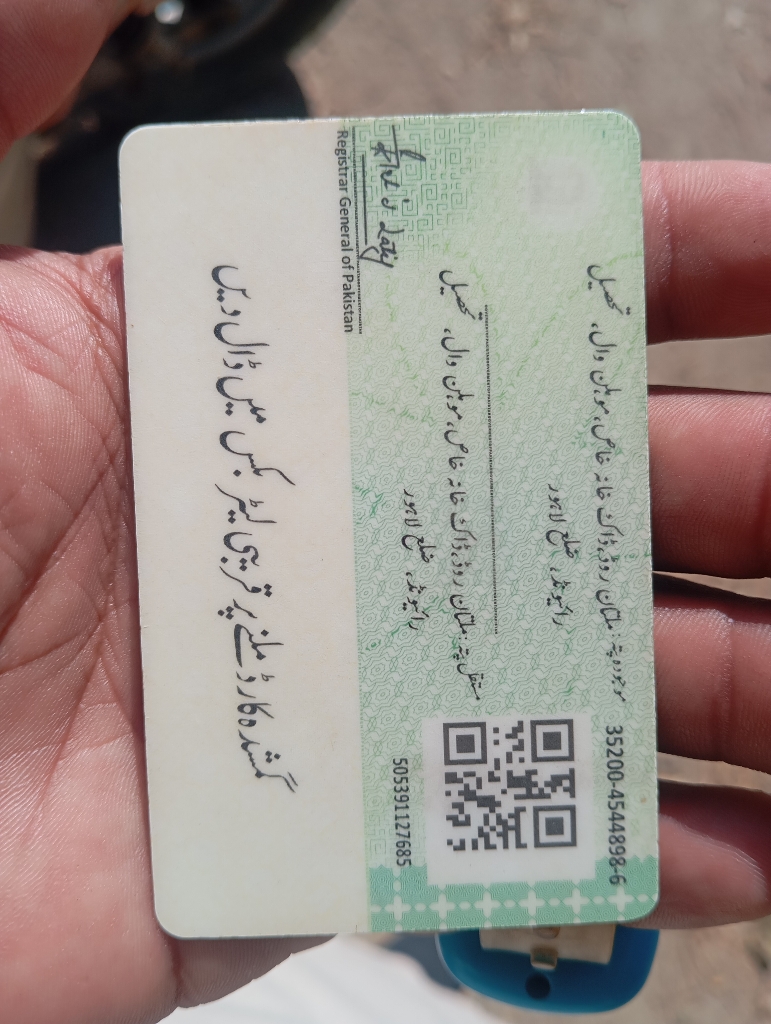 35200-4544898-6
موجودہ پتہ: ملتان روڈ، ڈاک خانہ خاص، موہلن وال، تحصیل
رائیونڈ، ضلع لاہور
مستقل پتہ: ملتان روڈ، ڈاک خانہ خاص، موہلن وال، تحصیل
رائیونڈ، ضلع لاہور
505391127685
Registrar General of Pakistan
گمشدہ کارڈ ملنے پر قریبی لیٹر بکس میں ڈال دیں